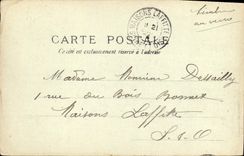 MAISONS LAFFITTE
CARTE POSTALE
Ce côté est exclusivement réservé à l'adresse
Madame Monsieur Dessailly
1 rue du Bois Bonnet
Maisons Laffitte
S. & O